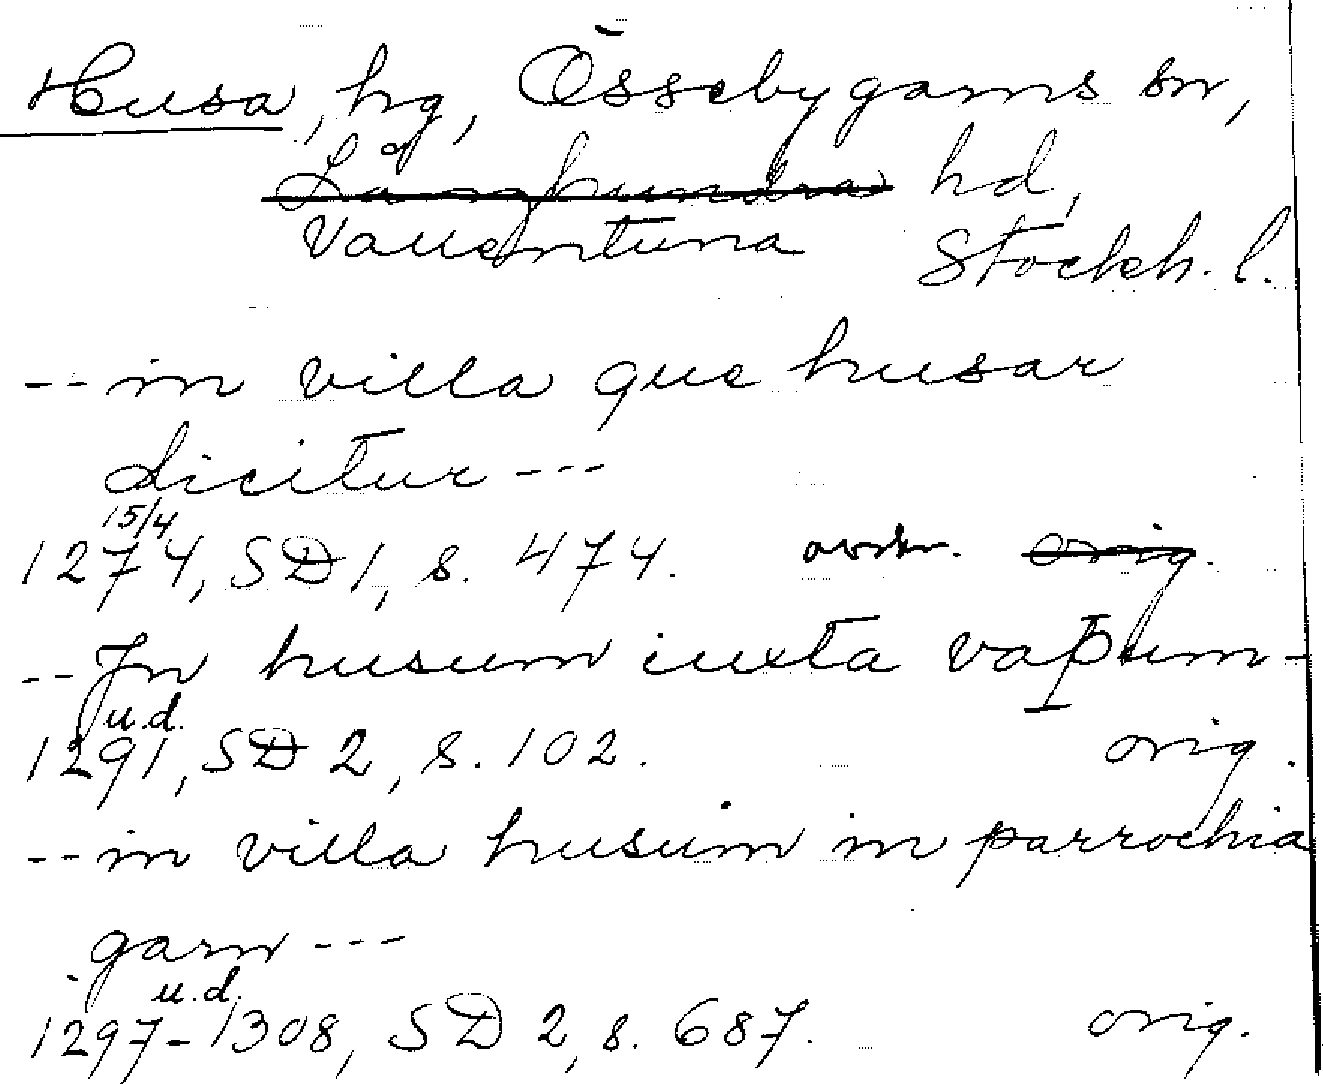 Husa, hg, Össebygarns sn,
Långhundra hd,
Vallentuna Stockh. l.
-- in villa que husar
dicitur ---
15/4
1274, SD 1, s. 474. avskr. orig.
-- Jn husum iuxta vapum-
u.d.
1291, SD 2, s. 102. orig.
-- in villa husum in parrochia
garn ---
u.d.
1297-1308, SD 2, s. 687. orig.